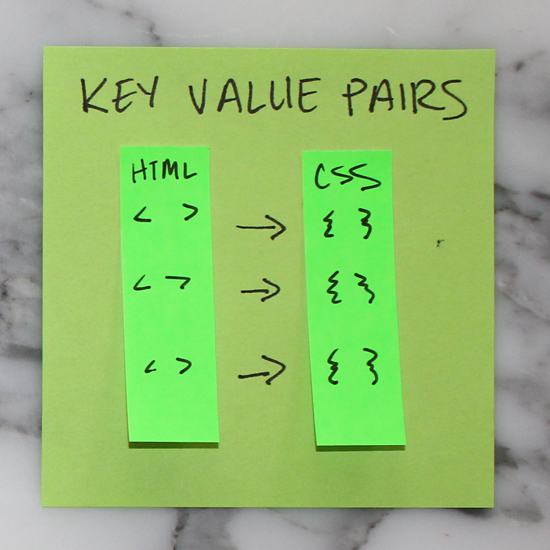 KEY VALUE PAIRS
HTML CSS
< > → { }
< > → { }
< > → { }